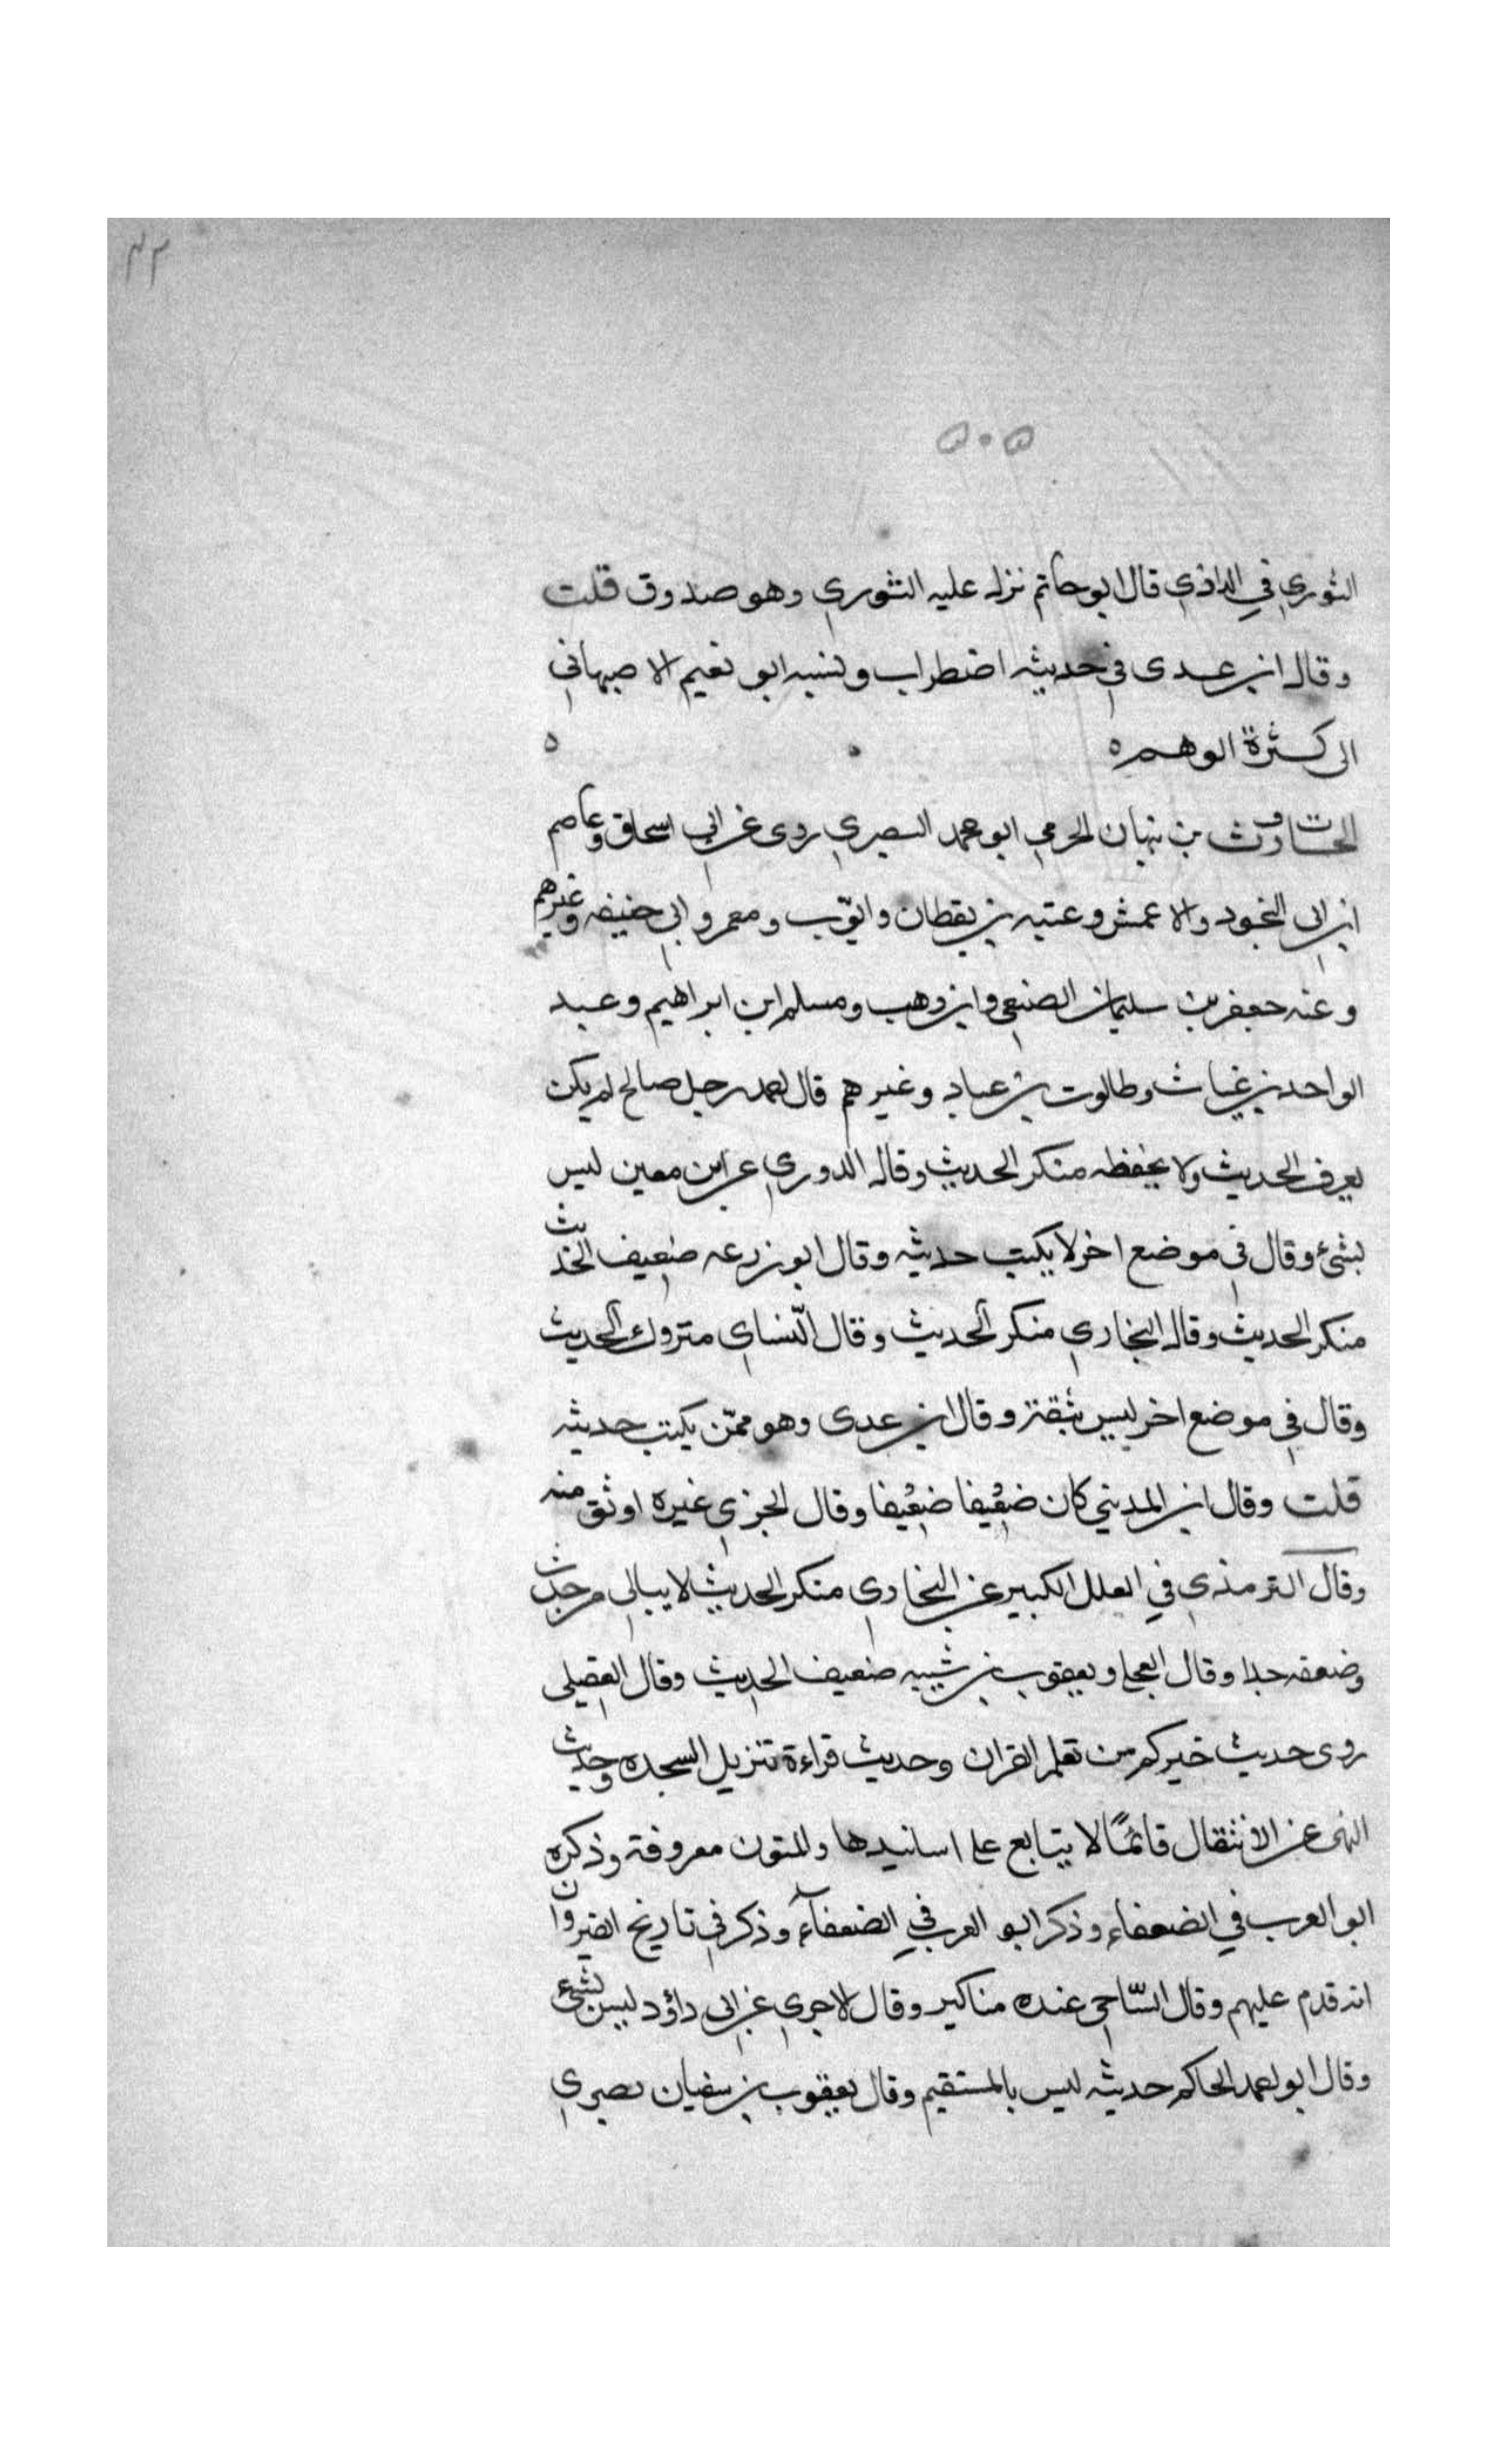 ٤٢
٥٠٥
الثوري في الداذي قال ابو حاتم نزل عليه الثوري وهو صدوق قلت
وقال ابن عدى في حديثه اضطراب ونسبه ابو نعيم الاصبهاني
الى كثرة الوهم ه ه
الحارث بن نبهان الجرمي ابو محمد البصري روى عن ابي اسحاق وعاصم
ابن ابي النجود والاعمش وعتبه بن يقطان وايّوب ومعمر وابي حنيفه وغيرهم
وعنه جعفر بن سليمان الضبعي وابن وهب ومسلم ابن ابراهيم وعبد
الواحد بن غياث وطالوت بن عباد وغيرهم قال احمد رجل صالح لم يكن
يعرف الحديث ولا يحفظه منكر الحديث وقال الدوري عن ابن معين ليس
بشئ وقال في موضع اخر لا يكتب حديثه وقال ابو زرعه ضعيف الحديث
منكر الحديث وقال البخاري منكر الحديث وقال النّساي متروك الحديث
وقال في موضع اخر ليس بثقة وقال ابن عدى وهو ممّن يكتب حديثه
قلت وقال ابن المديني كان ضعيفا ضعيفا وقال الحربي غيره اوثق منه
وقال الترمذي في العلل الكبير عن البخاري منكر الحديث لا يبالي من حدث
وضعفه جدا وقال العجلي ويعقوب بن شيبه ضعيف الحديث وقال العقيلي
روى حديث خيركم من تعلم القران وحديث قراءة تنزيل السجده وحديث
النهى عن الانتقال قائمًا لا يتابع على اسانيدها والمتون معروفة وذكره
ابو العرب في الضعفاء وذكر ابو العرب في الضعفاء وذكر في تاريخ القيروان
انه قدم عليهم وقال السّاجي عنده مناكير وقال الاجري عن ابي داؤد ليس بشئ
وقال ابو احمد الحاكم حديثه ليس بالمستقيم وقال يعقوب بن سفيان بصري